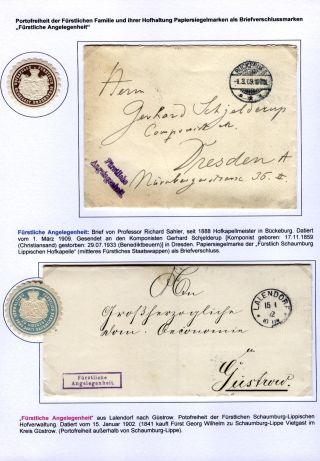 Portofreiheit der Fürstlichen Familie und ihrer Hofhaltung Papiersiegelmarken als Briefverschlussmarken
„Fürstliche Angelegenheit“
BÜCKEBURG
1.3.09.
Herrn
Gerhard Schjelderup
Componist
Dresden A
Nürnbergerstrasse 36 II
Fürstliche
Angelegenheit.
Fürstliche Angelegenheit: Brief von Professor Richard Sahler, seit 1888 Hofkapellmeister in Bückeburg. Datiert
vom 1. März 1909. Gesendet an den Komponisten Gerhard Schjelderup [Komponist geboren: 17.11.1859
(Christiansand) gestorben: 29.07.1933 (Benediktbeuern)] in Dresden. Papiersiegelmarke der „Fürstlich Schaumburg
Lippischen Hofkapelle“ (mittleres Fürstliches Staatswappen) als Briefverschluss.
An
Großherzogliche
vom Oeconomie
Güstrow.
LALENDORF
15 1
02
Fürstliche
Angelegenheit.
„Fürstliche Angelegenheit“ aus Lalendorf nach Güstrow. Potofreiheit der Fürstlichen Schaumburg-Lippischen
Hofverwaltung. Datiert vom 15. Januar 1902. (1841 kauft Fürst Georg Wilhelm zu Schaumburg-Lippe Vietgast im
Kreis Güstrow. (Portofreiheit außerhalb von Schaumburg-Lippe).